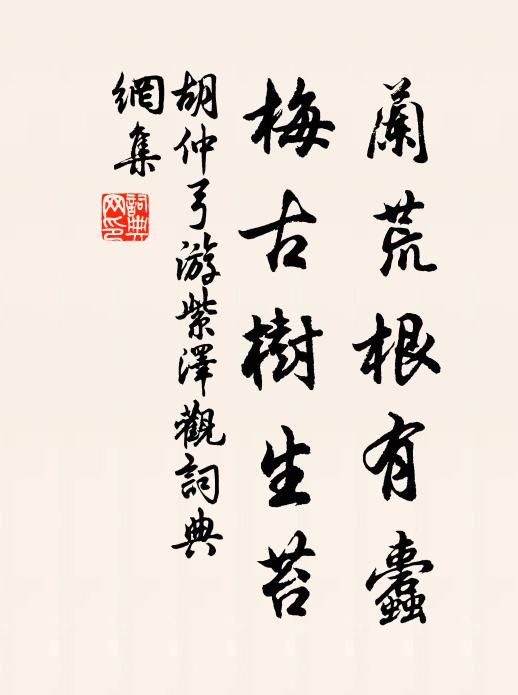 蘭荒根有蠹
梅古樹生苔
胡仲弓游紫澤觀詞典
網集
詞典網印